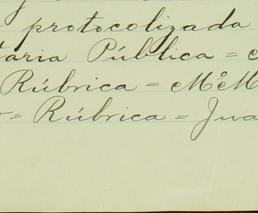 protocolizada
taria Pública =
Rúbrica = MoM
= Rúbrica = Jua